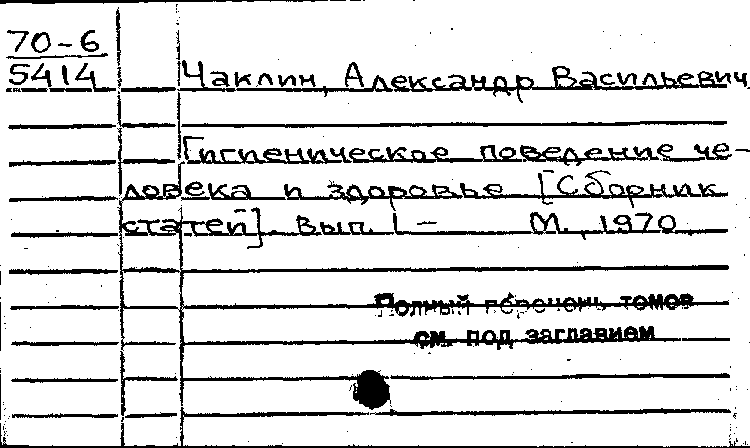 70-6
5414
Чаклин, Александр Васильевич
Гигиеническое поведение че-
ловека и здоровье [Сборник
статей]. Вып. 1 - М., 1970.
Полный перечень томов
см. под заглавием